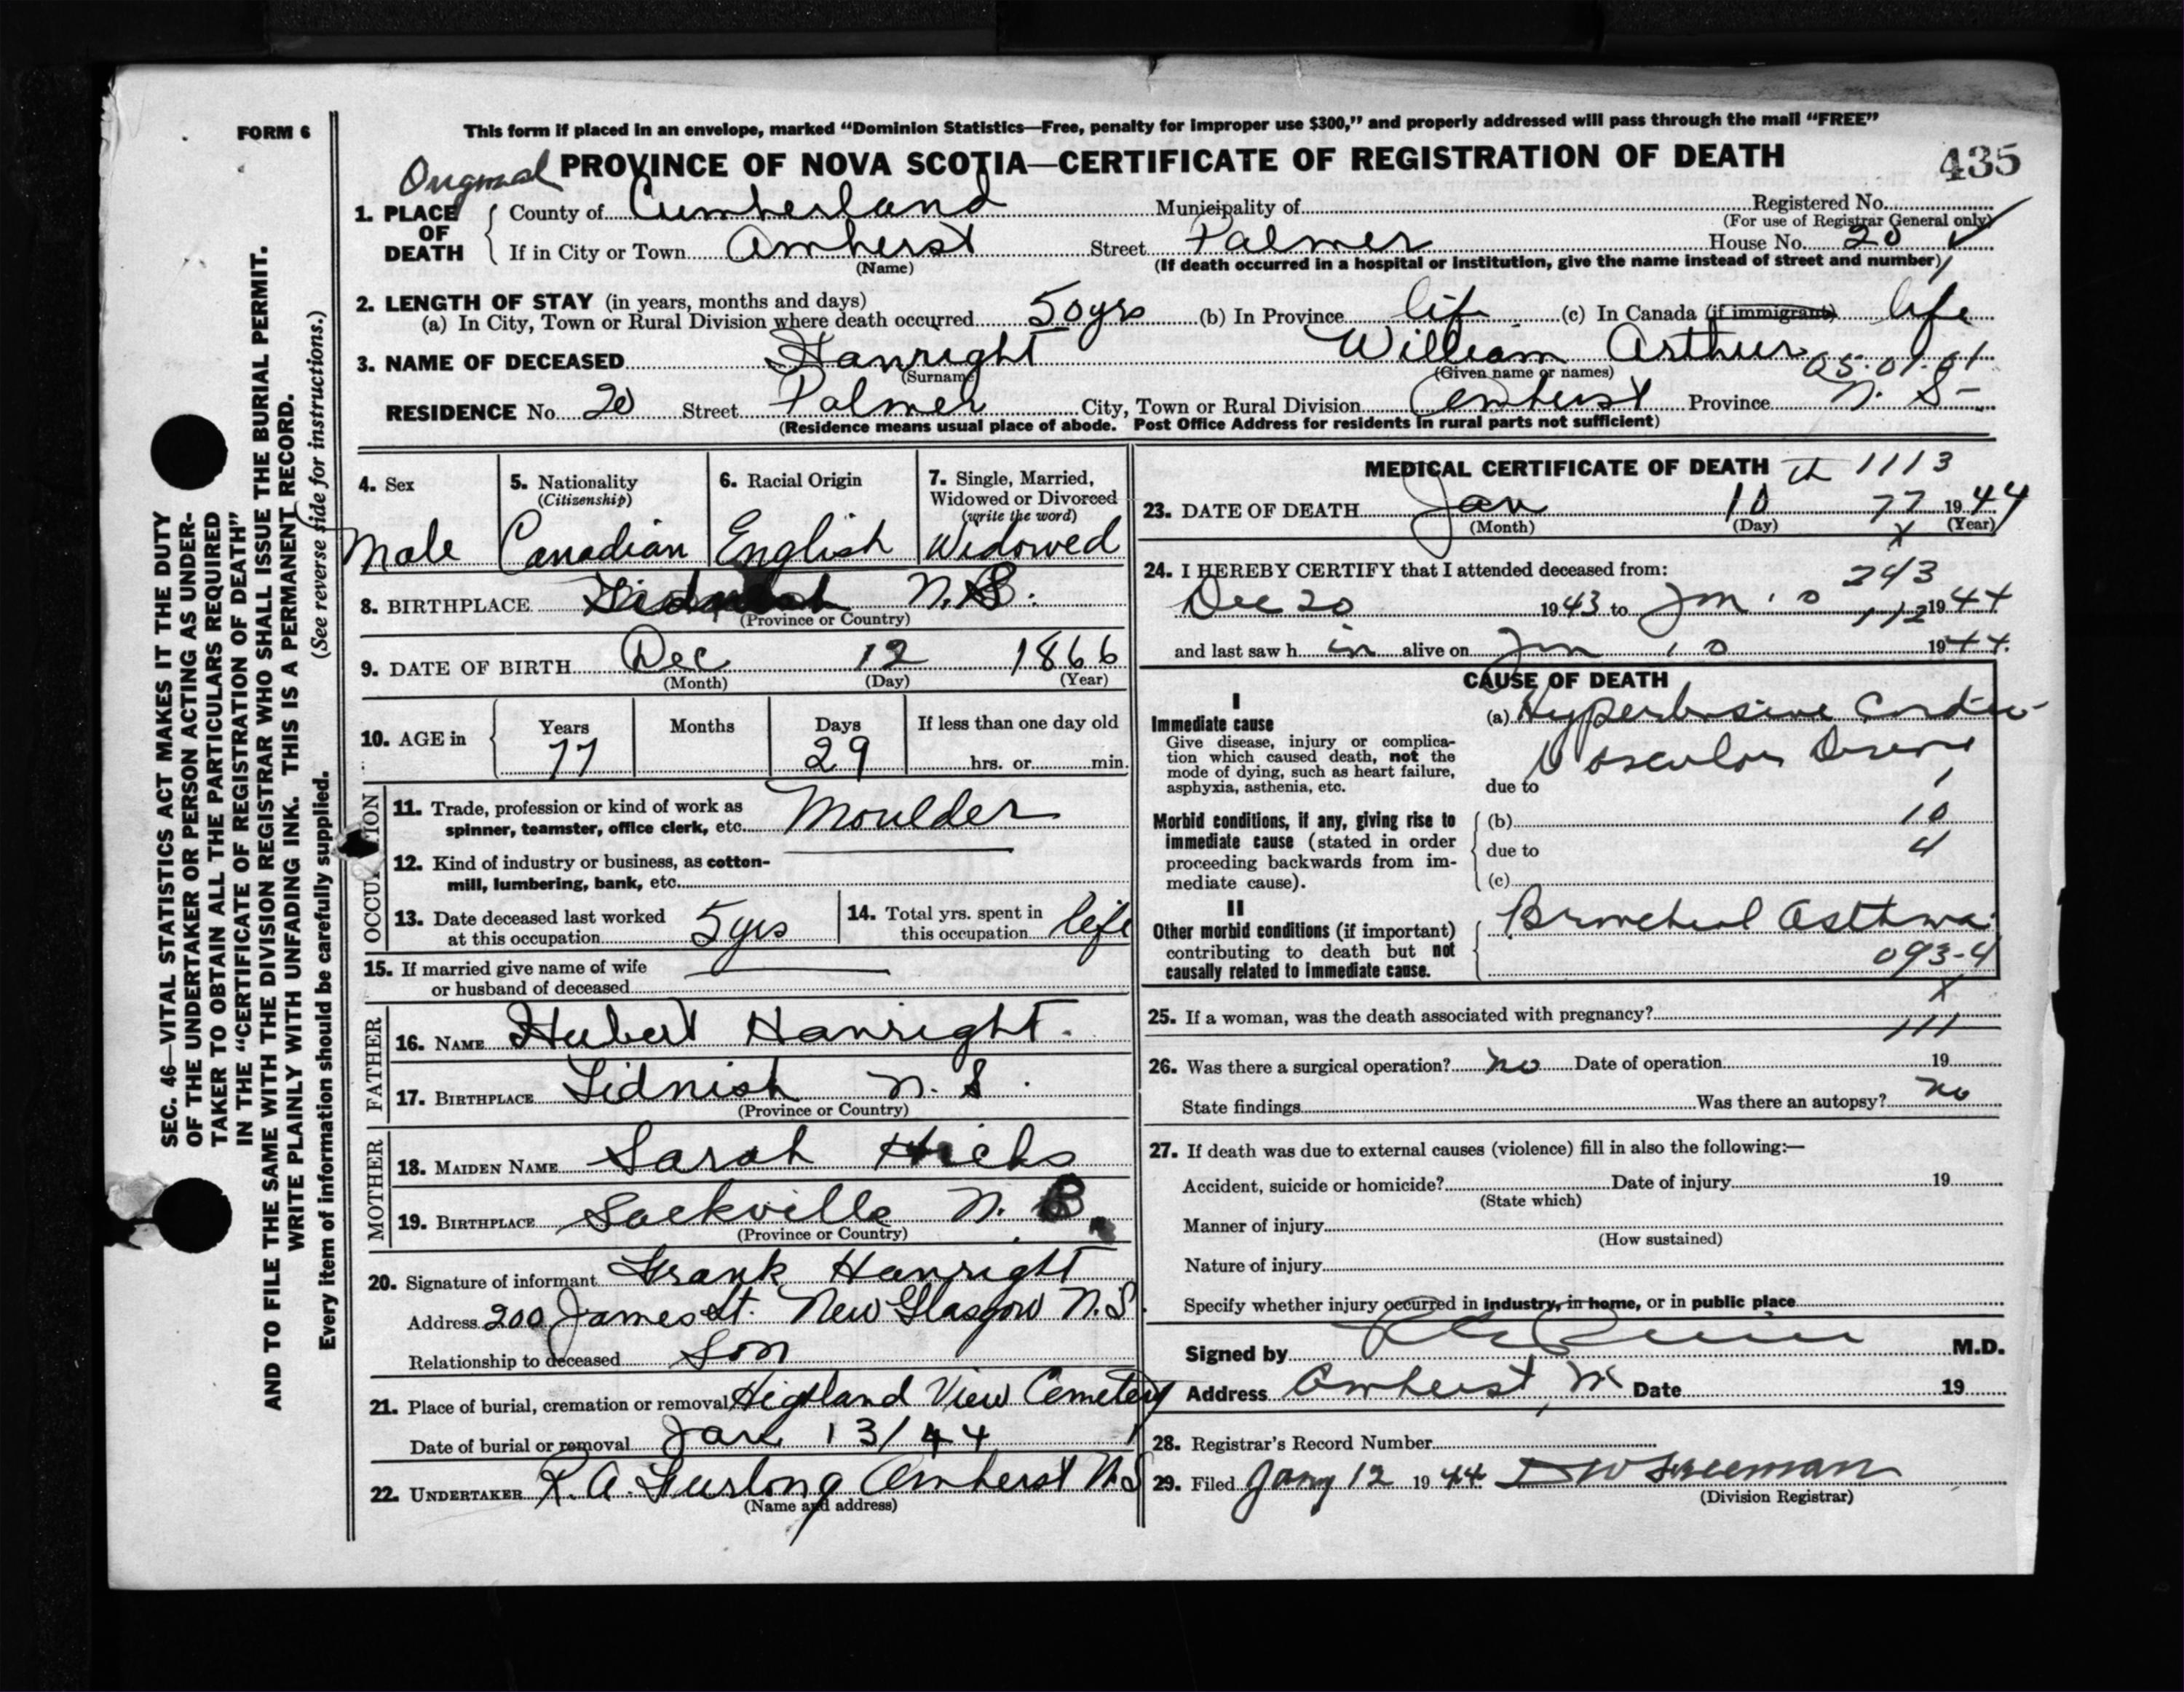 FORM 6
This form if placed in an envelope, marked “Dominion Statistics—Free, penalty for improper use $300,” and properly addressed will pass through the mail “FREE”
Original PROVINCE OF NOVA SCOTIA—CERTIFICATE OF REGISTRATION OF DEATH 435
1. PLACE OF DEATH County of Cumberland Municipality of Registered No.
(For use of Registrar General only)
If in City or Town Amherst Street Palmer House No. 20
(Name) (If death occurred in a hospital or institution, give the name instead of street and number)
2. LENGTH OF STAY (in years, months and days)
(a) In City, Town or Rural Division where death occurred 50 yrs (b) In Province life (c) In Canada (if immigrant) life
3. NAME OF DECEASED Hanright William Arthur
(Surname) (Given name or names) 05.01.01
RESIDENCE No. 20 Street Palmer City, Town or Rural Division Amherst Province N. S-
(Residence means usual place of abode. Post Office Address for residents in rural parts not sufficient)
4. Sex 5. Nationality 6. Racial Origin 7. Single, Married,
(Citizenship) Widowed or Divorced
(write the word)
Male Canadian English Widowed
8. BIRTHPLACE N.
(Province or Country)
9. DATE OF BIRTH Dec 12 1866
(Month) (Day) (Year)
10. AGE in Years Months Days If less than one day old
77 29 hrs. or min.
OCCUPATION
11. Trade, profession or kind of work as
spinner, teamster, office clerk, etc. Moulder
12. Kind of industry or business, as cotton-
mill, lumbering, bank, etc.
13. Date deceased last worked
at this occupation 5 yrs
14. Total yrs. spent in
this occupation life
15. If married give name of wife
or husband of deceased
FATHER
16. NAME Hubert Hanright.
17. BIRTHPLACE Tidnish N. S.
(Province or Country)
MOTHER
18. MAIDEN NAME Sarah Hicks
19. BIRTHPLACE Sackville N. B.
(Province or Country)
20. Signature of informant Frank Hanright
Address 200 James St. New Glasgow N.S.
Relationship to deceased Son
21. Place of burial, cremation or removal Highland View Cemetery
Date of burial or removal Jan 13/44
22. UNDERTAKER R. A. Furlong Amherst N.S
(Name and address)
MEDICAL CERTIFICATE OF DEATH 1113
23. DATE OF DEATH Jan 10 77 1944
(Month) (Day) (Year)
X
24. I HEREBY CERTIFY that I attended deceased from:
243
Dec 20 1943 to Jan 10 1944
112
and last saw h im alive on Jan 10 1944.
CAUSE OF DEATH
I
Immediate cause (a) Hypertensive Cardio-
Give disease, injury or complica-
tion which caused death, not the
mode of dying, such as heart failure,
asphyxia, asthenia, etc.
Vascular Disease
due to 1
Morbid conditions, if any, giving rise to
immediate cause (stated in order
proceeding backwards from im-
mediate cause).
(b) 10
due to 4
(c)
II
Other morbid conditions (if important)
contributing to death but not
causally related to immediate cause.
Bronchial Asthma
093-4
X
25. If a woman, was the death associated with pregnancy?
111
26. Was there a surgical operation? no Date of operation 19
State findings Was there an autopsy? no
27. If death was due to external causes (violence) fill in also the following:—
Accident, suicide or homicide? Date of injury 19
(State which)
Manner of injury
(How sustained)
Nature of injury
Specify whether injury occurred in industry, in home, or in public place
Signed by M.D.
Address Amherst, NS Date 19
28. Registrar's Record Number
29. Filed Jany 12 1944 D W Freeman
(Division Registrar)
SEC. 46—VITAL STATISTICS ACT MAKES IT THE DUTY
OF THE UNDERTAKER OR PERSON ACTING AS UNDER-
TAKER TO OBTAIN ALL THE PARTICULARS REQUIRED
IN THE “CERTIFICATE OF REGISTRATION OF DEATH”
AND TO FILE THE SAME WITH THE DIVISION REGISTRAR WHO SHALL ISSUE THE BURIAL PERMIT.
WRITE PLAINLY WITH UNFADING INK. THIS IS A PERMANENT RECORD.
Every item of information should be carefully supplied. (See reverse side for instructions.)